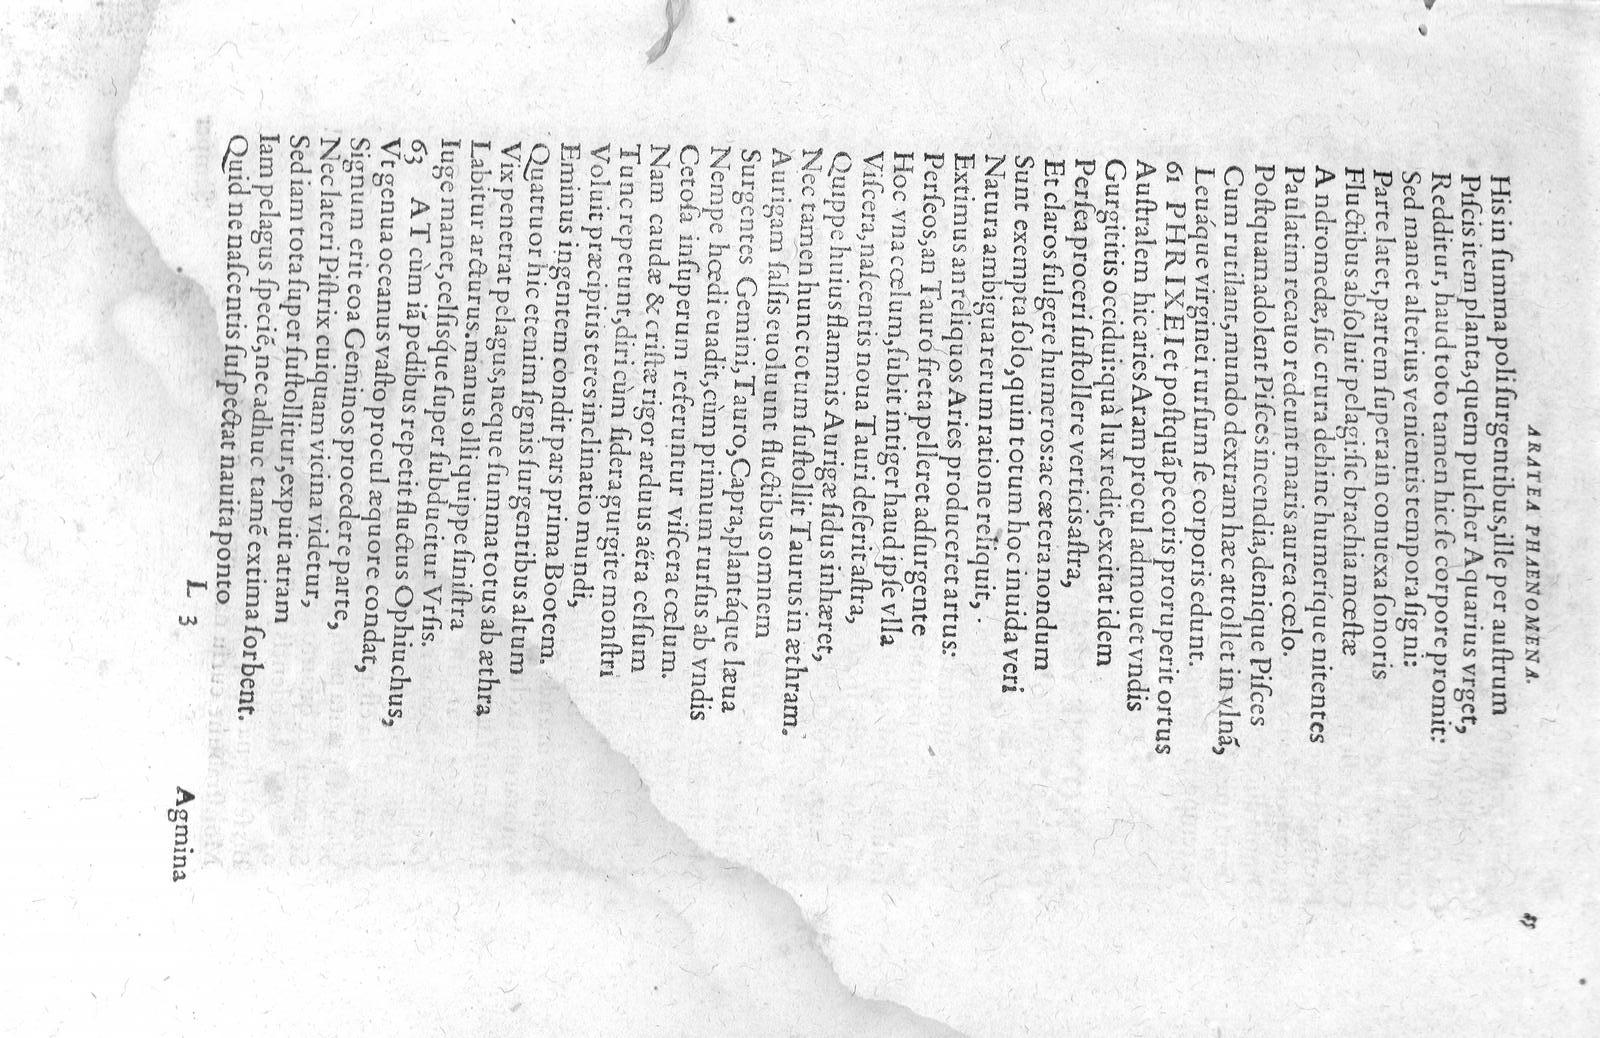 ARATEA PHAENOMENA. 85
His in ſumma poli ſurgentibus, ille per auſtrum
Piſcis item planta, quem pulcher Aquarius vrget,
Redditur, haud toto tamen hic ſe corpore promit:
Sed manet alterius venientis tempora ſigni:
Parte latet, partem ſupera in conuexa ſonoris
Fluctibus abſoluit pelagi: ſic brachia mœſtæ
Andromedæ, ſic crura dehinc humerique nitentes
Paulatim recauo redeunt maris aurea cœlo.
Poſtquam adolent Piſces incendia, denique Piſces
Cum rutilant, mundo dextram hæc attollet in vlnā,
Leuáque virginei rurſum ſe corporis edunt.
61 PHRIXEI et poſtquā pecoris proruperit ortus
Auſtralem hic aries Aram procul admouet vndis
Gurgititis occidui: quà lux redit, excitat idem
Perſea proceri ſuſtollere verticis aſtra,
Et claros fulgere humeros: ac cætera nondum
Sunt exempta ſolo, quin totum hoc inuida veri
Natura ambigua rerum ratione reliquit,
Extimus an reliquos Aries produceret artus:
Perſeos, an Tauro freta pelleret adſurgente
Hoc vna cœlum, ſubit intiger haud ipſe vlla
Viſcera, naſcentis noua Tauri deſerit aſtra,
Quippe huius flammis Aurigæ ſidus inhæret,
Nec tamen hunc totum ſuſtollit Taurus in æthram.
Aurigam ſalſis euoluunt fluctibus omnem
Surgentes Gemini, Tauro, Capra, plantáque læua
Nempe hœdi euadit, cùm primum rurſus ab vndis
Cetoſa inſuperum referuntur viſcera cœlum.
Nam caudæ & criſtæ rigor arduus aëra celſum
Tunc repetunt, diri cùm ſidera gurgite monſtri
Voluit præcipitis teres inclinatio mundi,
Eminus ingentem condit pars prima Bootem.
Quattuor hic etenim ſignis ſurgentibus altum
Vix penetrat pelagus, neque ſumma totus ab æthra
Labitur arcturus. manus olli quippe ſiniſtra
Iuge manet, celſiſque ſuper ſubducitur Vrſis.
63 AT cùm iā pedibus repetit fluctus Ophiuchus,
Vt genua oceanus vaſto procul æquore condat,
Signum erit eoa Geminos procedere parte,
Nec lateri Piſtrix cuiquam vicina videtur,
Sed iam tota ſuper ſuſtollitur, expuit atram
Iam pelagus ſpeciē, nec adhuc tamē extima ſorbent.
Quid ne naſcentis ſuſpectat nauita ponto
L 3 Agmina